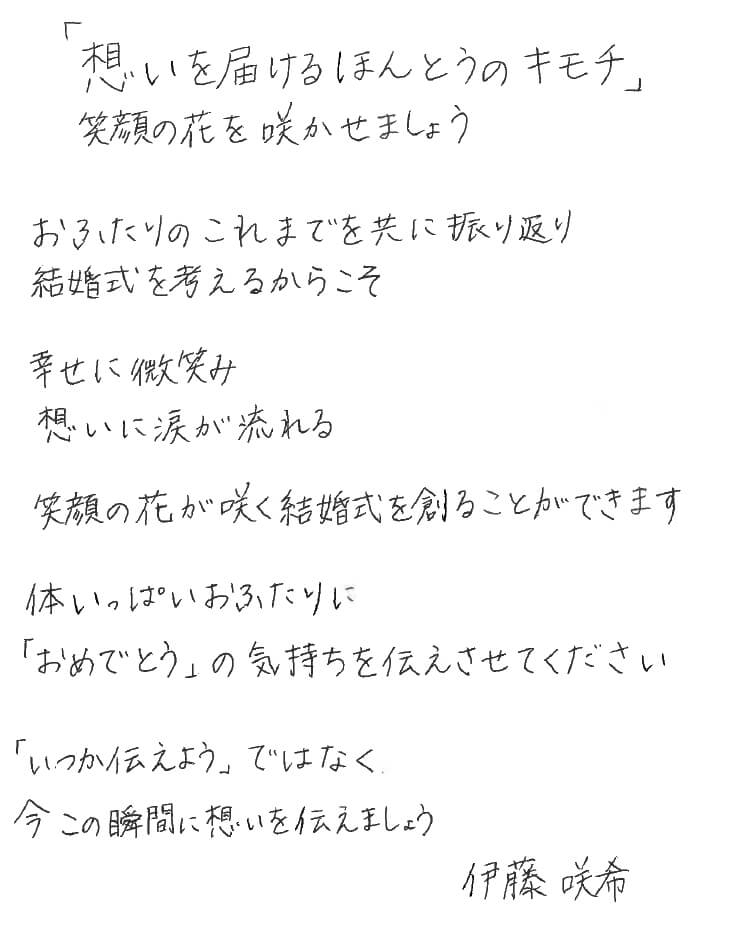 「想いを届けるほんとうのキモチ」
笑顔の花を咲かせましょう
おふたりのこれまでを共に振り返り
結婚式を考えるからこそ
幸せに微笑み
想いに涙が流れる
笑顔の花が咲く結婚式を創ることができます
体いっぱいおふたりに
「おめでとう」の気持ちを伝えさせてください
「いつか伝えよう」ではなく
今この瞬間に想いを伝えましょう
伊藤 咲希